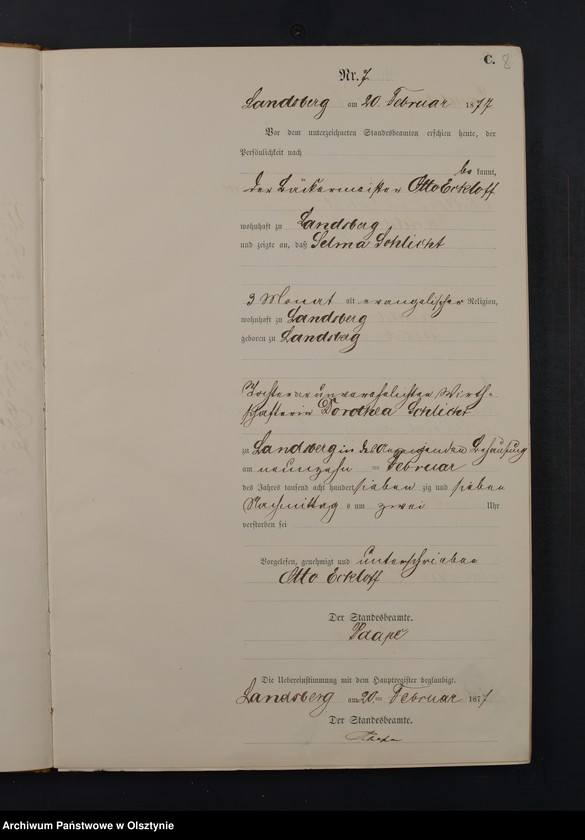 C. 8
Nr. 7
Landsberg am 20. Februar 1877
Vor dem unterzeichneten Standesbeamten erschien heute, der
Persönlichkeit nach
be kannt,
der Bäckermeister Otto Eckloff
wohnhaft zu Landsberg
und zeigte an, daß Selma Schlicht
3 Monat alt evangelischer Religion,
wohnhaft zu Landsberg
geboren zu Landsberg
Tochter der unverehelichten Wirth-
schafterin Dorothea Schlicht
zu Landsberg in des Anzeigenden Behausung
am neunzehn ten Februar
des Jahres tausend acht hundert sieben zig und sieben
Nachmittag s um zwei Uhr
verstorben sei
Vorgelesen, genehmigt und unterschrieben
Otto Eckloff
Der Standesbeamte.
Die Uebereinstimmung mit dem Hauptregister beglaubigt.
Landsberg am 20ten Februar 1877
Der Standesbeamte.
Archiwum Państwowe w Olsztynie